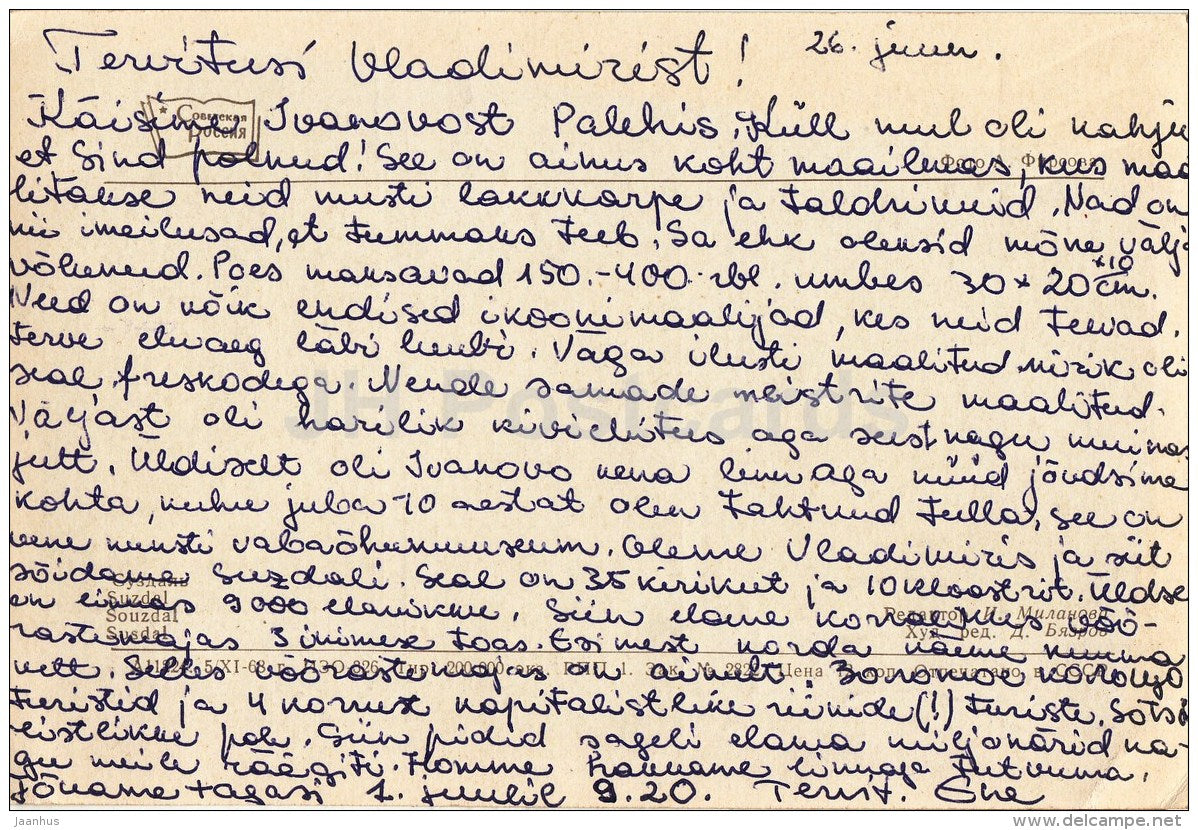 Tervitusi Vladimirist! 26. juun.
Käisime Ivanovost Palehis. Küll mul oli kahju
Советская
Россия
et Sind polnud! See on ainus koht maailmas, kus maa
Фото А. Фирсова
litakse neid musti lakkkarpe ja taldrikuid. Nad on
nii imeilusad, et tummaks teeb. Sa ehk oleksid mõne välja
võlunud. Poes maksavad 150.-400.rbl. umbes 30 x 20 x10 cm.
Need on kõik endised ikoonimaalijad, kes neid teevad.
terve eluaeg läbi luubi. Väga ilusti maalitud kirik oli
seal, freskodega. Nende samade meistrite maalitud.
Väljast oli harilik kiviehitus aga seest nagu muinas
jutt. Üldiselt oli Ivanovo kena linn aga nüüd jõudsime
kohta, kuhu juba 10 aastat olen tahtnud tulla, see on
vene kunsti vabaõhumuuseum. Oleme Vladimiris ja siit
sõidame Suzdali. Seal on 35 kirikut ja 10 kloostrit. Üldse
Суздаль
Suzdal
on linnas 9000 elanikku. Siin elame korralikus võõ-
Souzdal
Редактор И. Миланова
Susdal
Худ. ред. Д. Бязров
rastemajas 3 inimese toas. Esimest korda näeme kumma
5/XI-68 г. ИЗО-326. Тир. 200.000 Зак. № 282. Цена коп. Отпечатано в СССР
nett. Selles võõrastemajas on ainult 3 korrust
turistid ja 4 korrust kapitalistlike riikide (!) turiste. Sotsia
listlikku pole. Siin pidid sageli elama miljonärid na-
gu meile räägiti. Homme hakkame linnaga tutvuma.
Jõuame tagasi 1. juulil 9.20. Tervit. Ene
JH Postcards
Jaanhus
www.delcampe.net